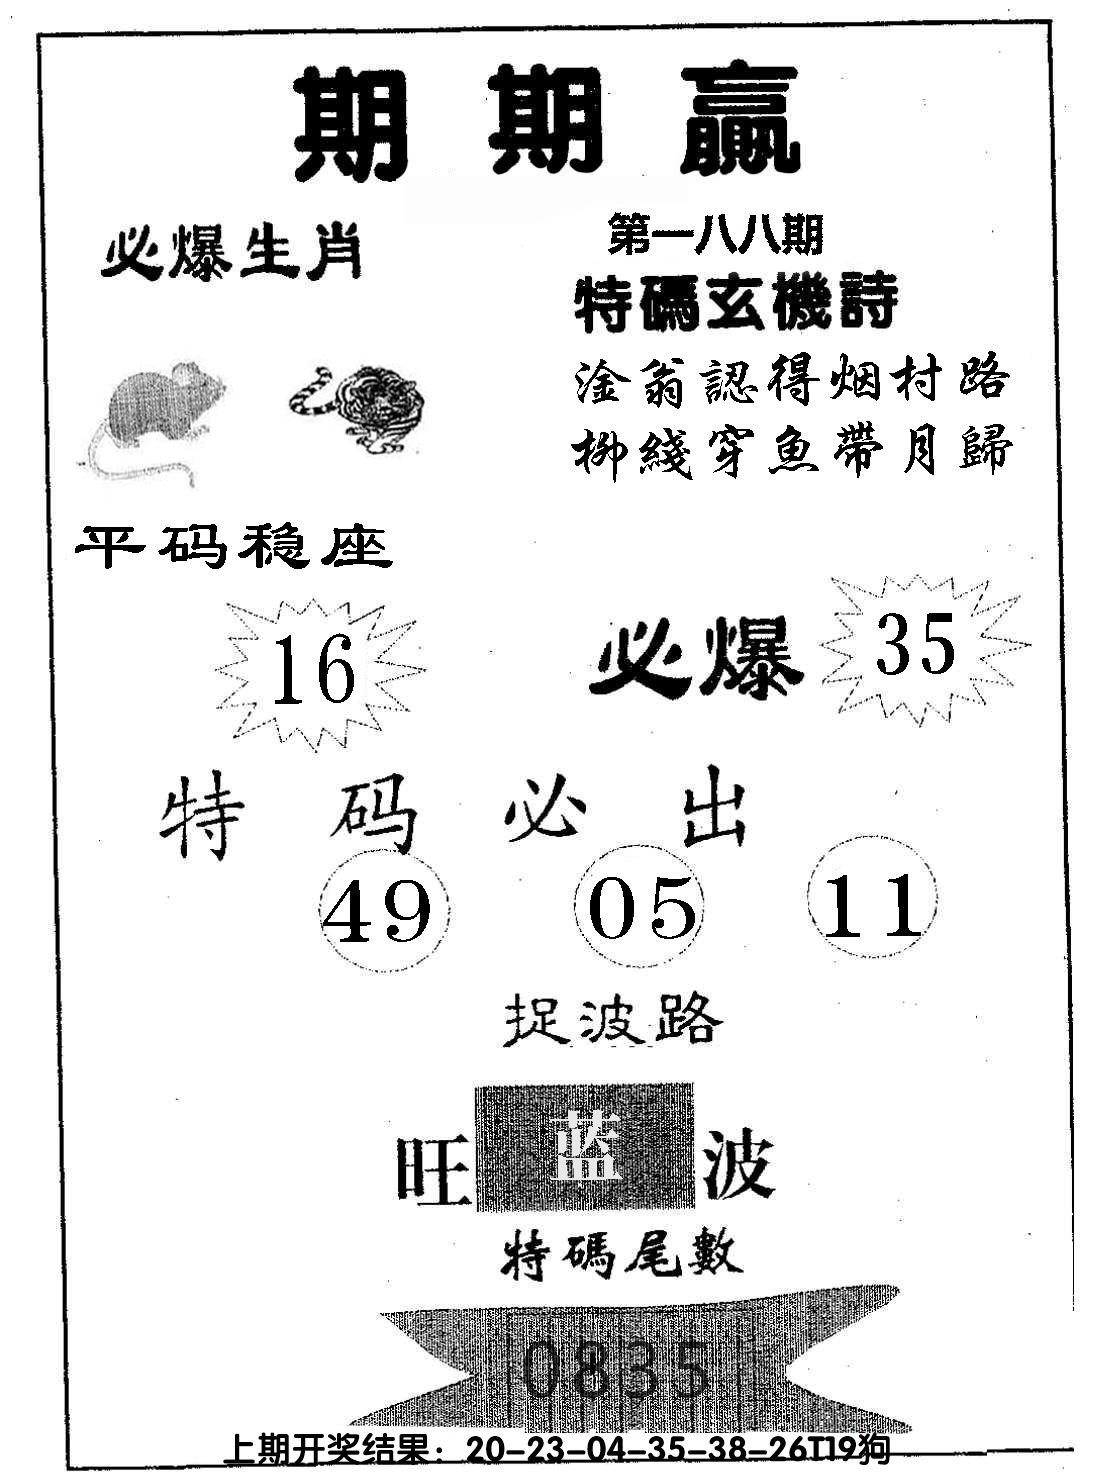 期期赢
必爆生肖
第一八八期
特碼玄機詩
淦翁認得烟村路
柳綫穿魚帶月歸
平码稳座
16
必爆
35
特码必出
49 05 11
捉波路
旺蓝波
特碼尾數
0835
上期开奖结果：20-23-04-35-38-26T19狗